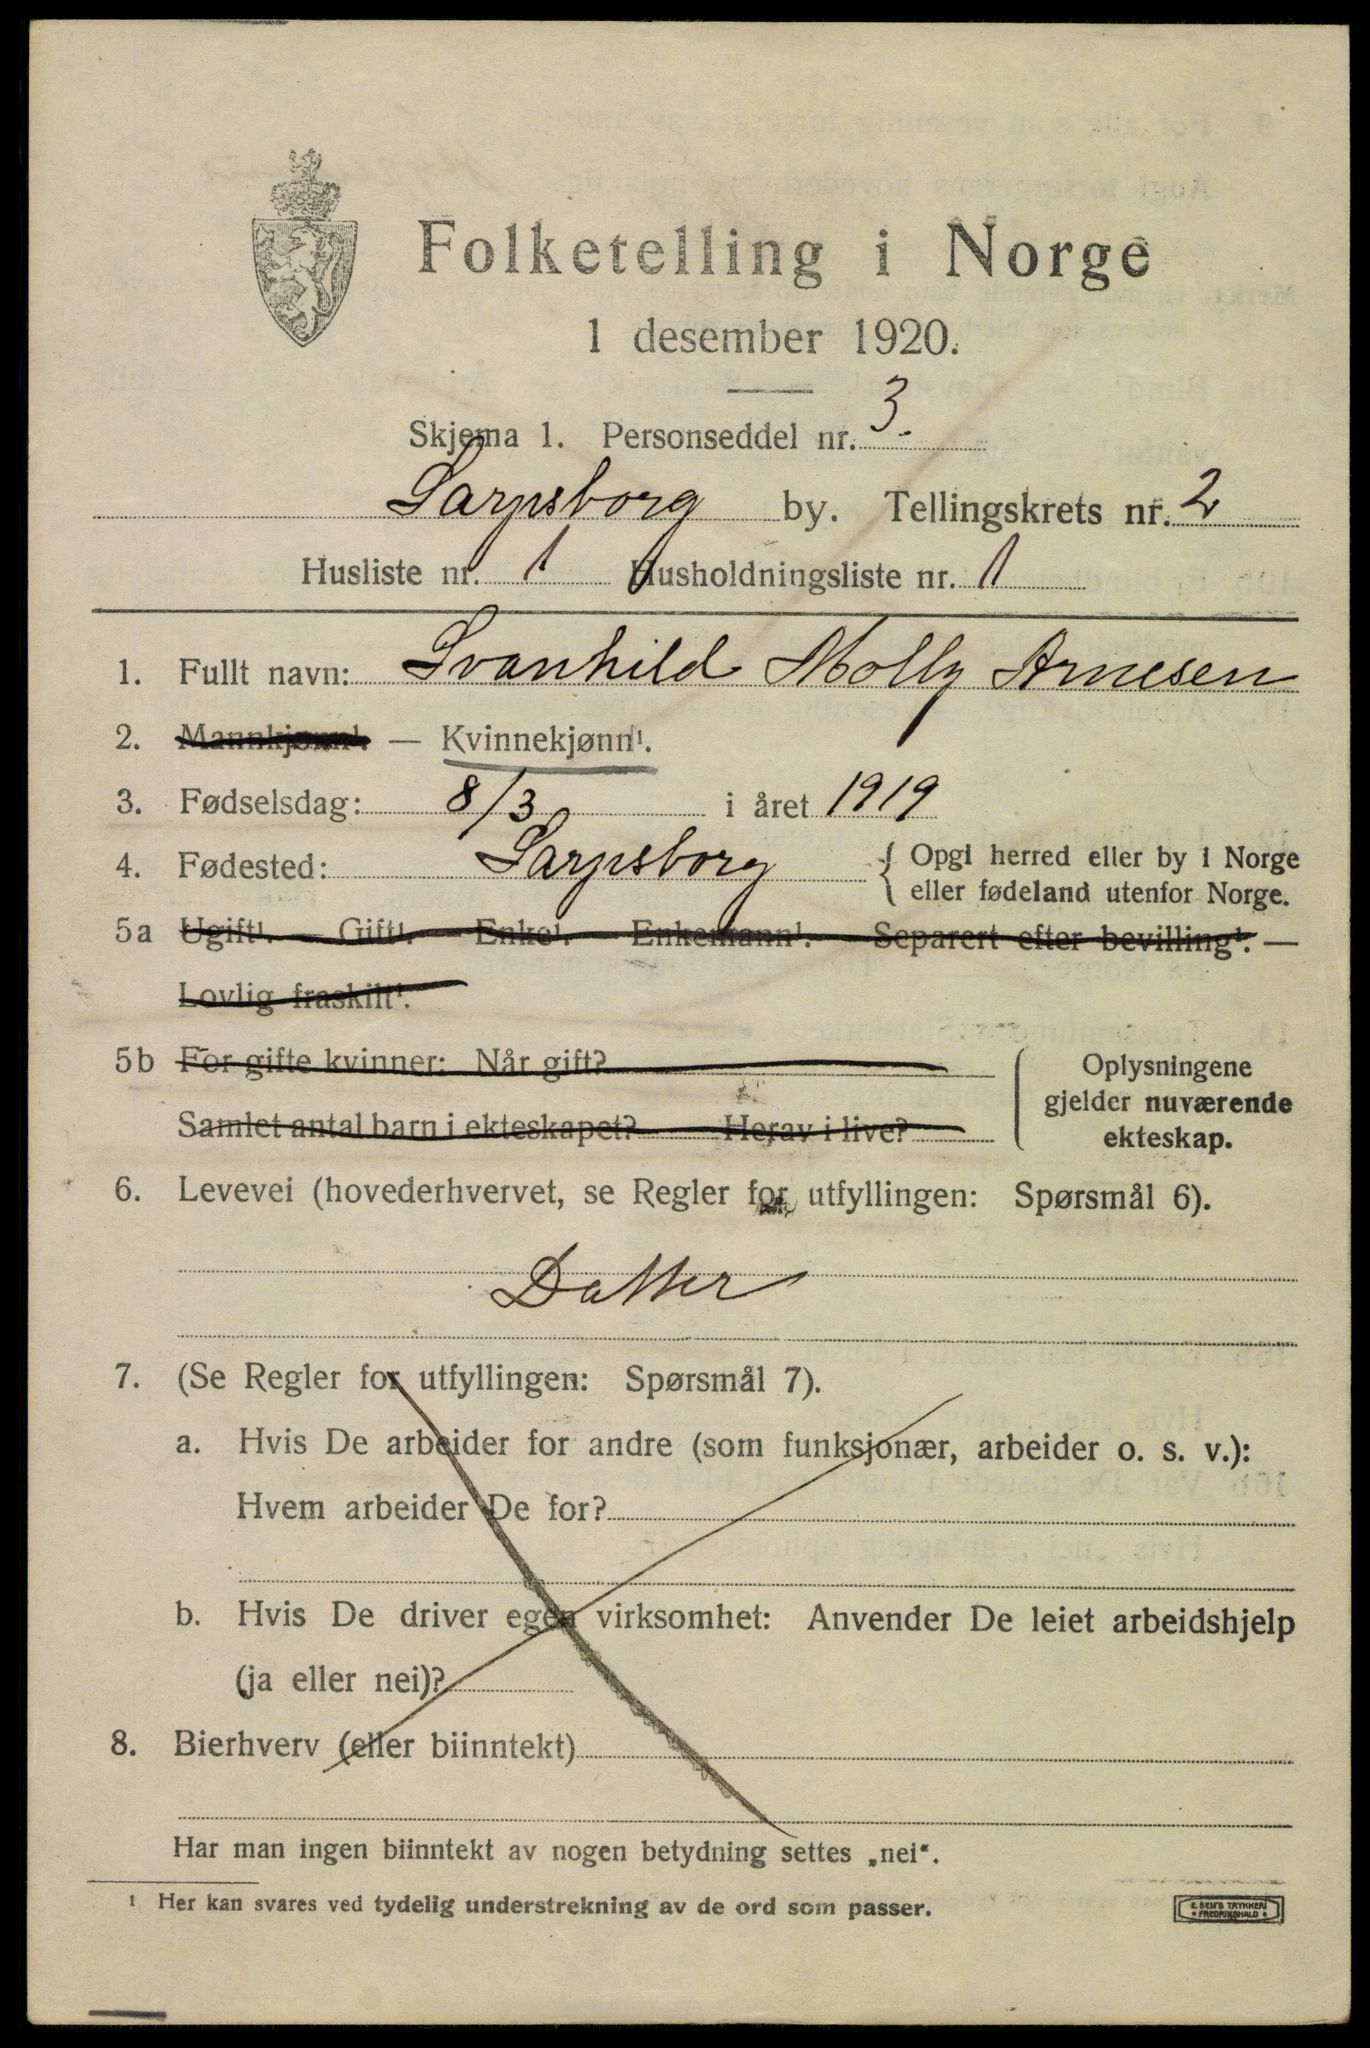 Folketelling i Norge
1 desember 1920.
Skjema 1. Personseddel nr. 3.
Sarpsborg by. Tellingskrets nr. 2
Husliste nr. 1 Husholdningsliste nr. 1
1. Fullt navn: Svanhild Molly Arnesen
2. Mannkjønn¹. — Kvinnekjønn¹.
3. Fødselsdag: 8/3 i året 1919
4. Fødested: Sarpsborg { Opgi herred eller by i Norge
eller fødeland utenfor Norge.
5a Ugift¹. — Gift¹. — Enke¹. — Enkemann¹. — Separert efter bevilling¹. —
Lovlig fraskilt¹.
5b For gifte kvinner: Når gift?
Samlet antal barn i ekteskapet? Herav i live?
Oplysningene
gjelder nuværende
ekteskap.
6. Levevei (hovederhvervet, se Regler for utfyllingen: Spørsmål 6).
Datter
7. (Se Regler for utfyllingen: Spørsmål 7).
a. Hvis De arbeider for andre (som funksjonær, arbeider o. s. v.):
Hvem arbeider De for?
b. Hvis De driver egen virksomhet: Anvender De leiet arbeidshjelp
(ja eller nei)?
8. Bierhverv (eller biinntekt)
Har man ingen biinntekt av nogen betydning settes „nei“.
¹ Her kan svares ved tydelig understrekning av de ord som passer.
E. SEM'S TRYKKERI
FREDRIKSHALD